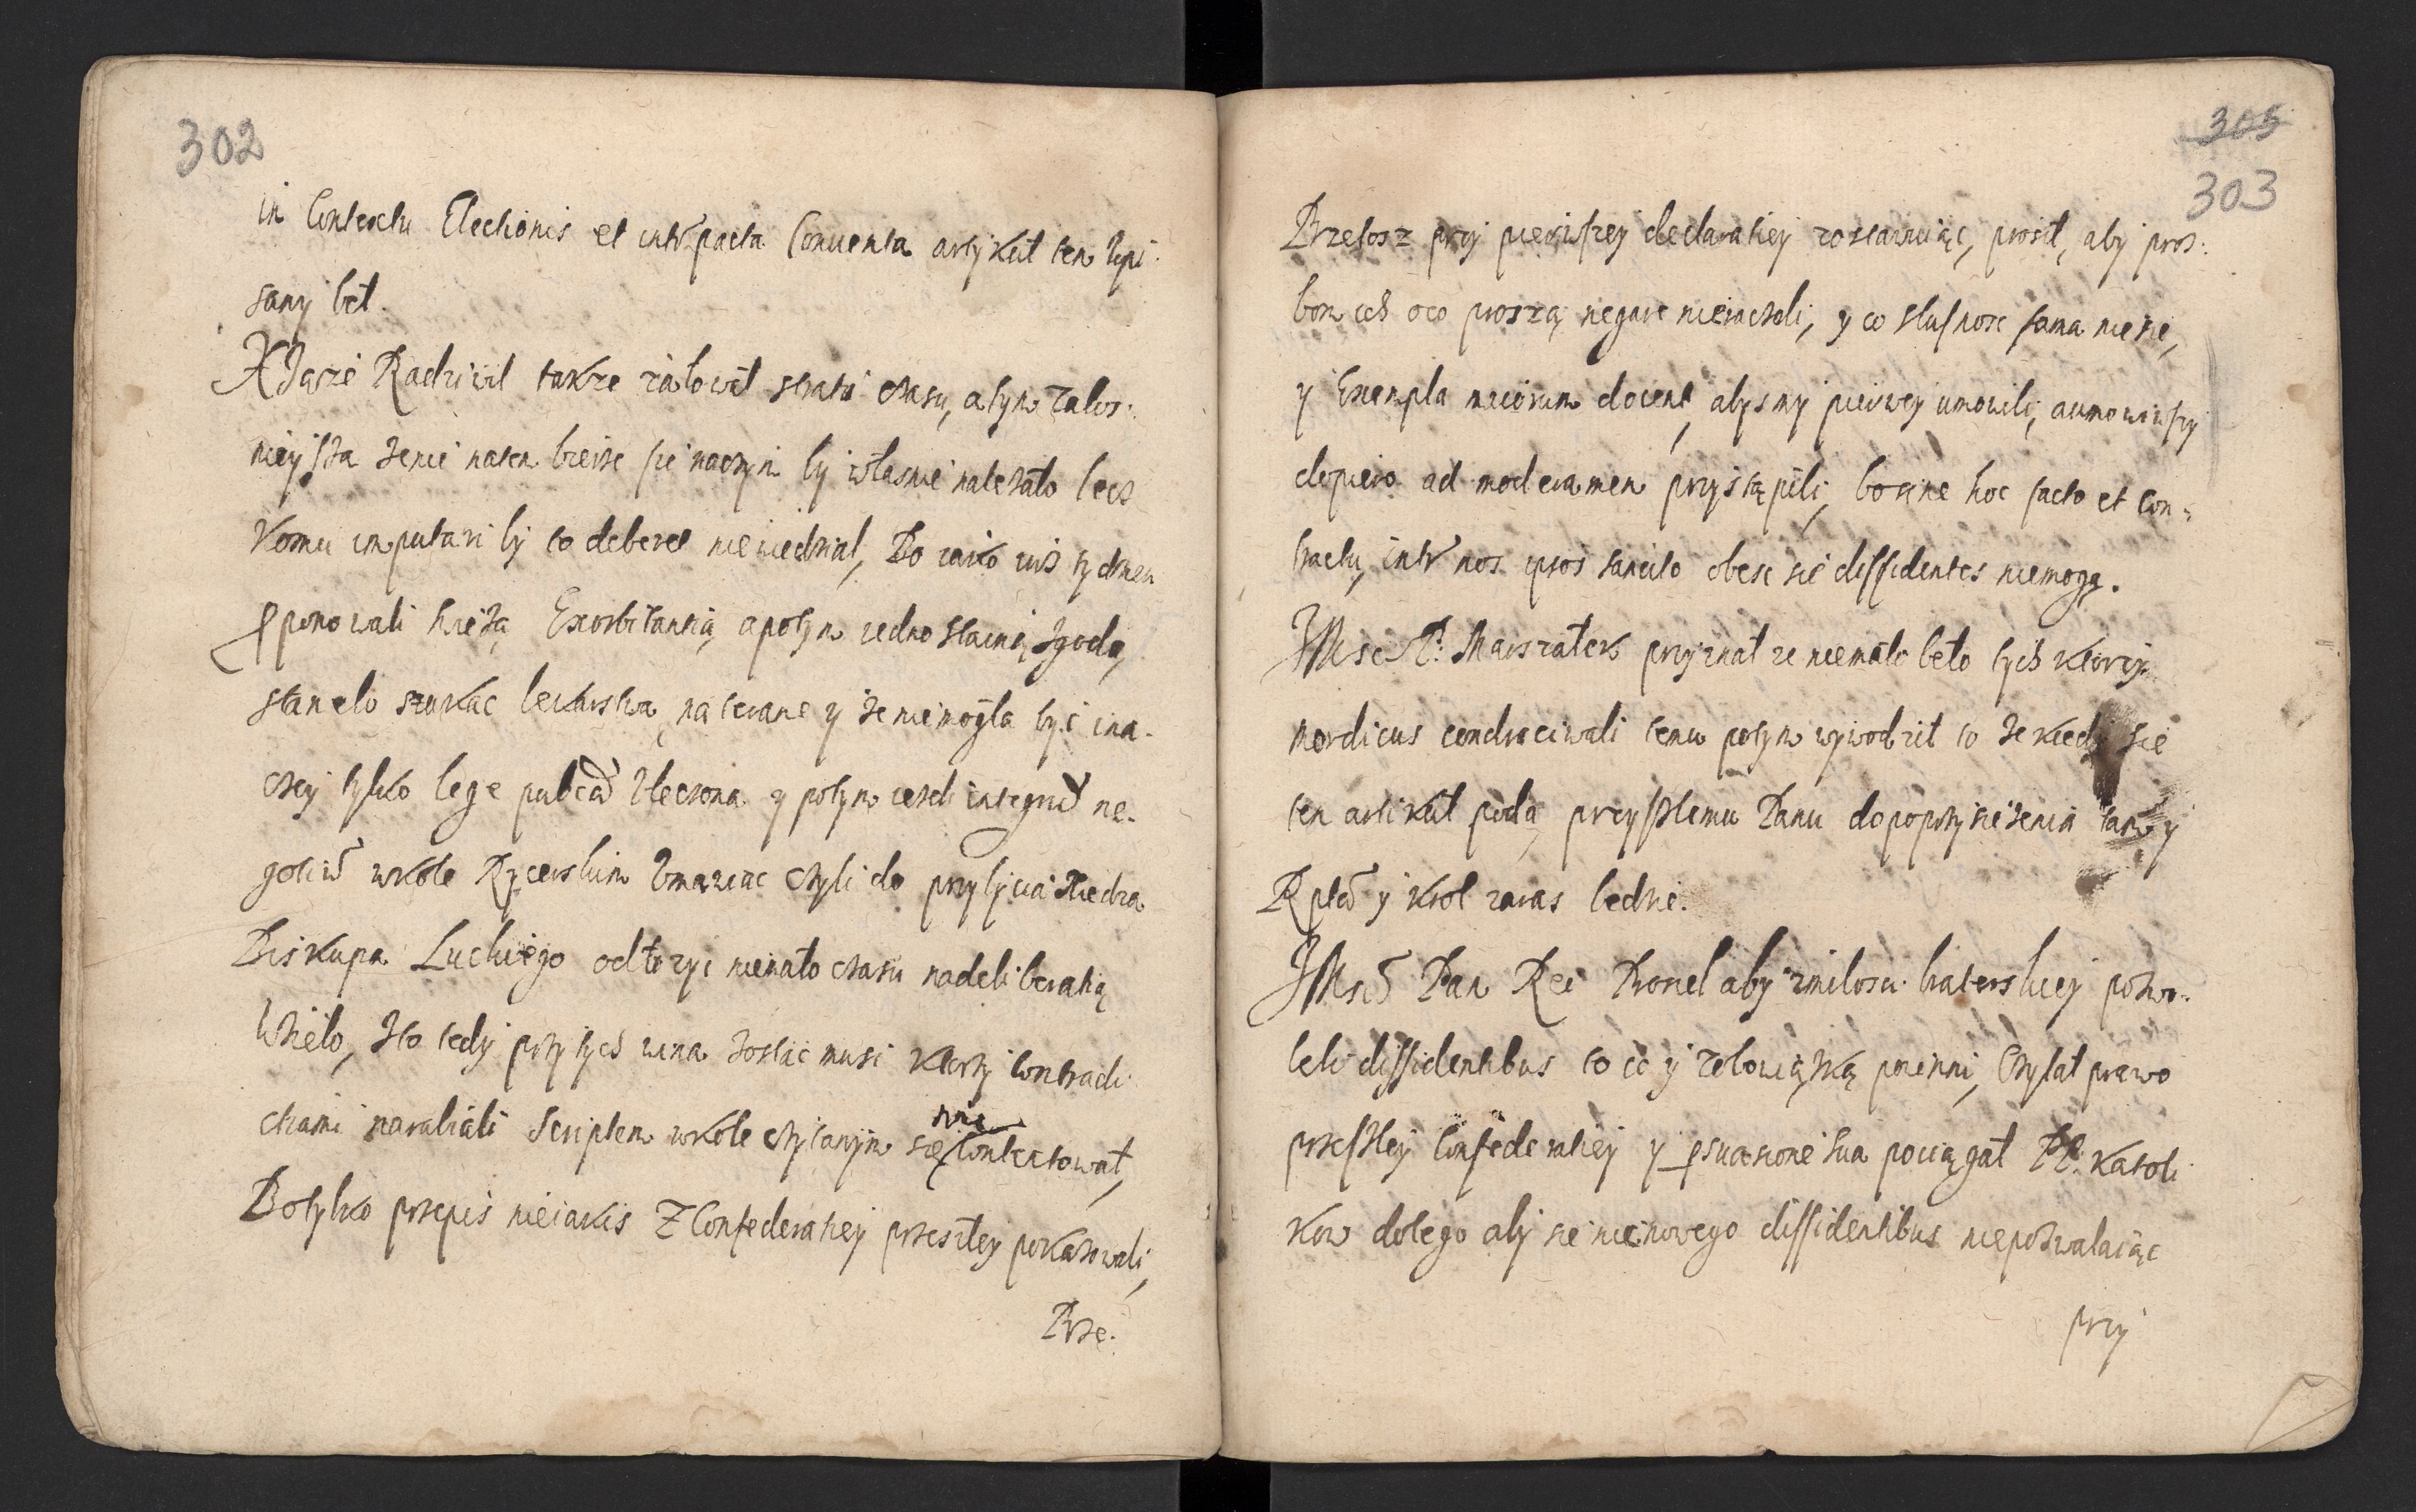 302
in Contextu Electionis et intr pacta Conuenta artykuł ten wpi-
sany beł.
X Jasze Radziwił takze załował stratę czasu, a tym zalos-
nieysza ze nie na ten bierze sie na czym by własnie nalezało lecz
Komu imputari by to deberet niewiedział, Bo iako wiż tydzien
proponowali hneżą Exorbitantią a potym iedno staini zgodą,
stanelo szukac lekarstwa na teране y ze niemogła być ina-
czey tylko lege publica zleczona y potym iezeli integrum ne-
gotium w kole Rycerskim zmawiac czyli do przybycia Xiedza
Biskupa Luckiego odłozyc niemało czasu na deliberatią
wzieło, Ito tedy przy tych wina zostać musi ktorzy contradi-
ctiami nawalali scriptem w kole czytanym się nie contentował,
Bo tylko przepis nieiakis Z Confederatiey przeszłey pokazowali,
Prze-
305
303
Przetosz przy pierwszey declaratiey zostawuiąc, prosił, aby pros-
bom ich o co proszą negare nieraczeli, y co słusznosc sama niesie,
y Exempla maiorum docent, abysmy pierwey umowili, a umowiwszy
dopiero ad moderamen przystąpili, bo sine hoc facto et con-
tractu, intr nos ipsos sancito obesc sie dissidentes niemogą.
JMsc P. Marszałek przyznał ze niemało beło tych ktorzy
mordicus contradiciwali temu potym wywodził to ze kiedy sie
ten artikuł poda przyszłemu Panu do poprzysiezenia tam y
Rpta y Krol zaras bedzie.
JMsc Pan Rei Prosieł aby z miłosci braterskiey pozwo-
leli dissidentibus to co y z obowiązku powinni, Czytał prawo
przeszłey Confederatiey y persuasione sua pociągał PP. Katoli-
kow do tego aby sie nic nowego dissidentibus nie pozwalaiąc
przy